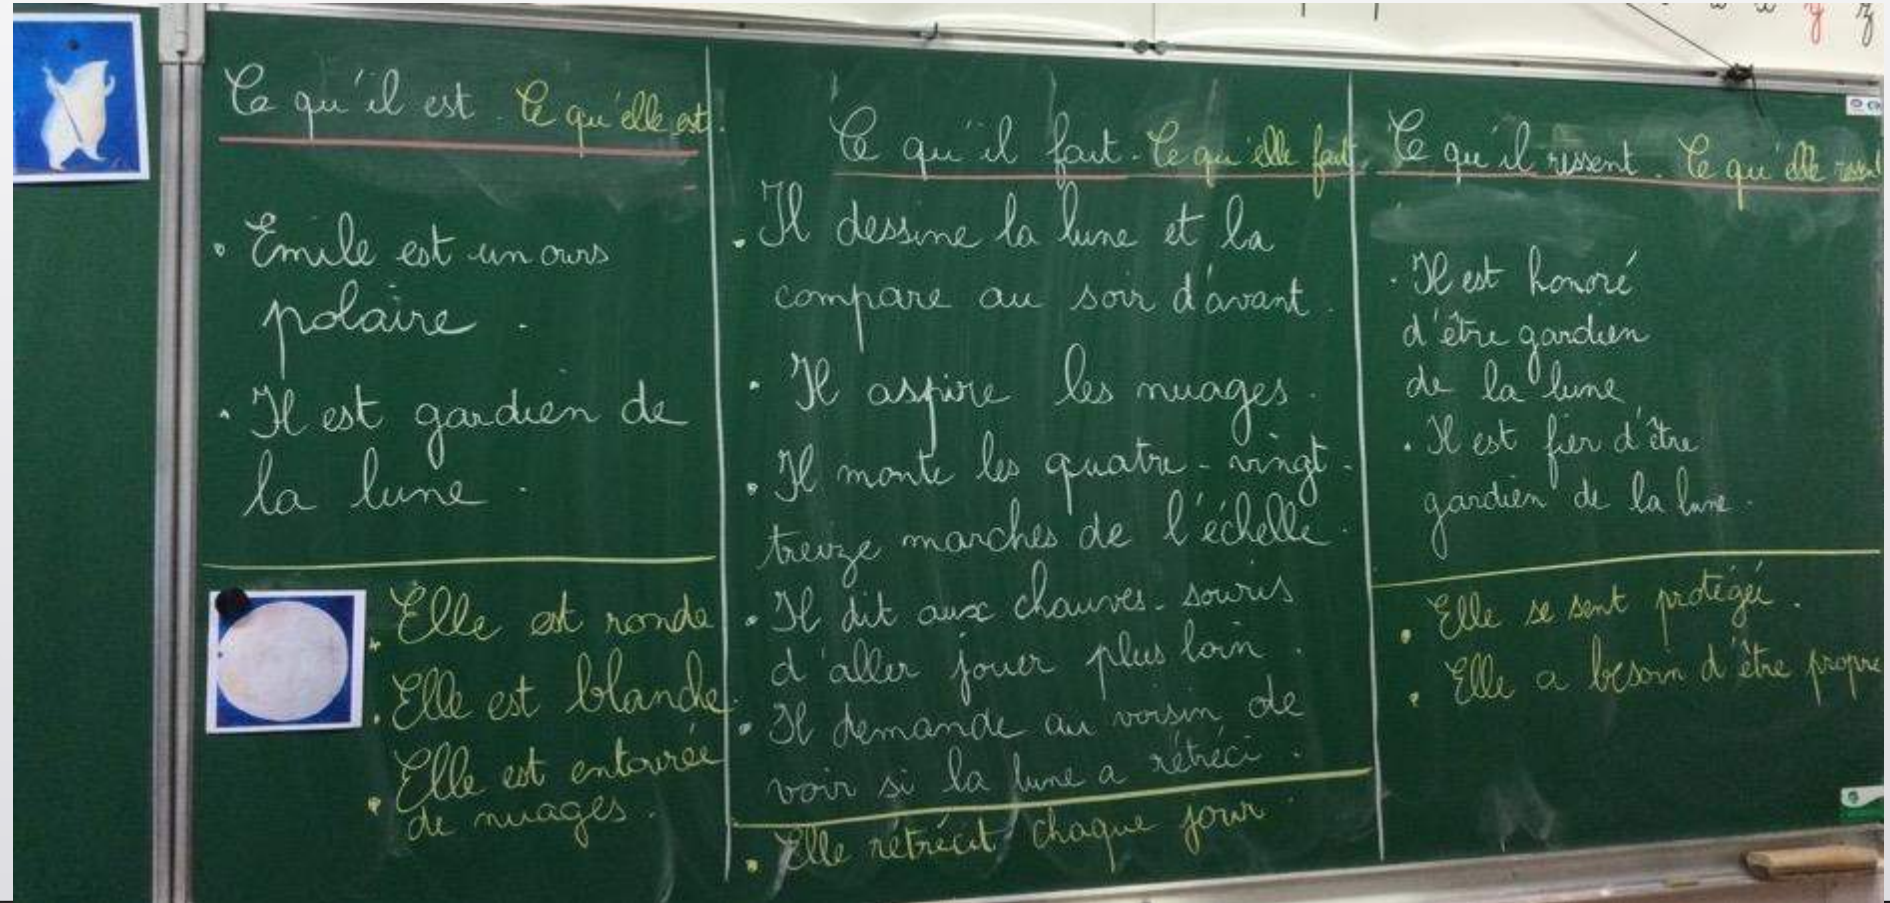 Ce qu'il est. Ce qu'elle est.
• Emile est un ours
polaire.
• Il est gardien de
la lune.
• Elle est ronde
• Elle est blanche.
• Elle est entourée
de nuages.
Ce qu'il fait. Ce qu'elle fait.
• Il dessine la lune et la
compare au soir d'avant.
• Il aspire les nuages.
• Il monte les quatre-vingt-
treize marches de l'échelle.
• Il dit aux chauves-souris
d'aller jouer plus loin.
• Il demande au voisin de
voir si la lune a rétréci.
• Elle rétrécit chaque jour.
Ce qu'il ressent. Ce qu'elle ressent
• Il est honoré
d'être gardien
de la lune
• Il est fier d'être
gardien de la lune.
• Elle se sent protégée.
• Elle a besoin d'être propre